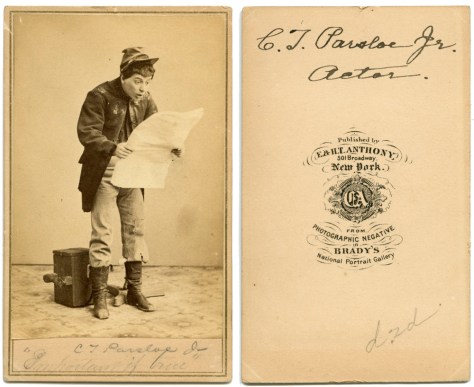 C T Parsloe Jr
C. T. Parsloe Jr.
Actor.
Published by
E. & H.T. ANTHONY,
501 Broadway
New York.
EA
FROM
PHOTOGRAPHIC NEGATIVE
in
BRADY'S
National Portrait Gallery
dzd